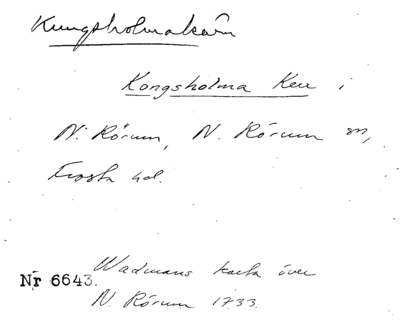 Kungsholmakärr
Kongsholma Kerr i
N. Rörum, N. Rörum sn,
Frosta hd.
Wadmans karta över
Nr 6643.
N. Rörum 1733.